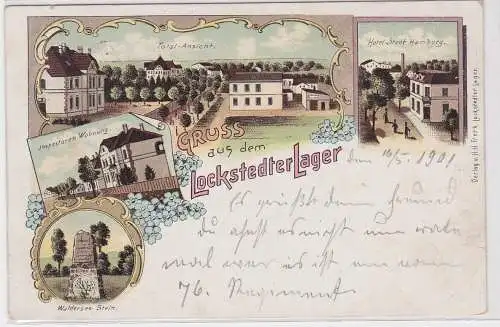 Total-Ansicht.
Hotel Stadt Hamburg.
Inspectoren Wohnung
GRUSS
aus dem
Lockstedter Lager
Waldersee-Stein.
den 16/5. 1901
Es grüßt dein Freund
du ahnst es nicht nun
mal wer es ist
76. Regiment